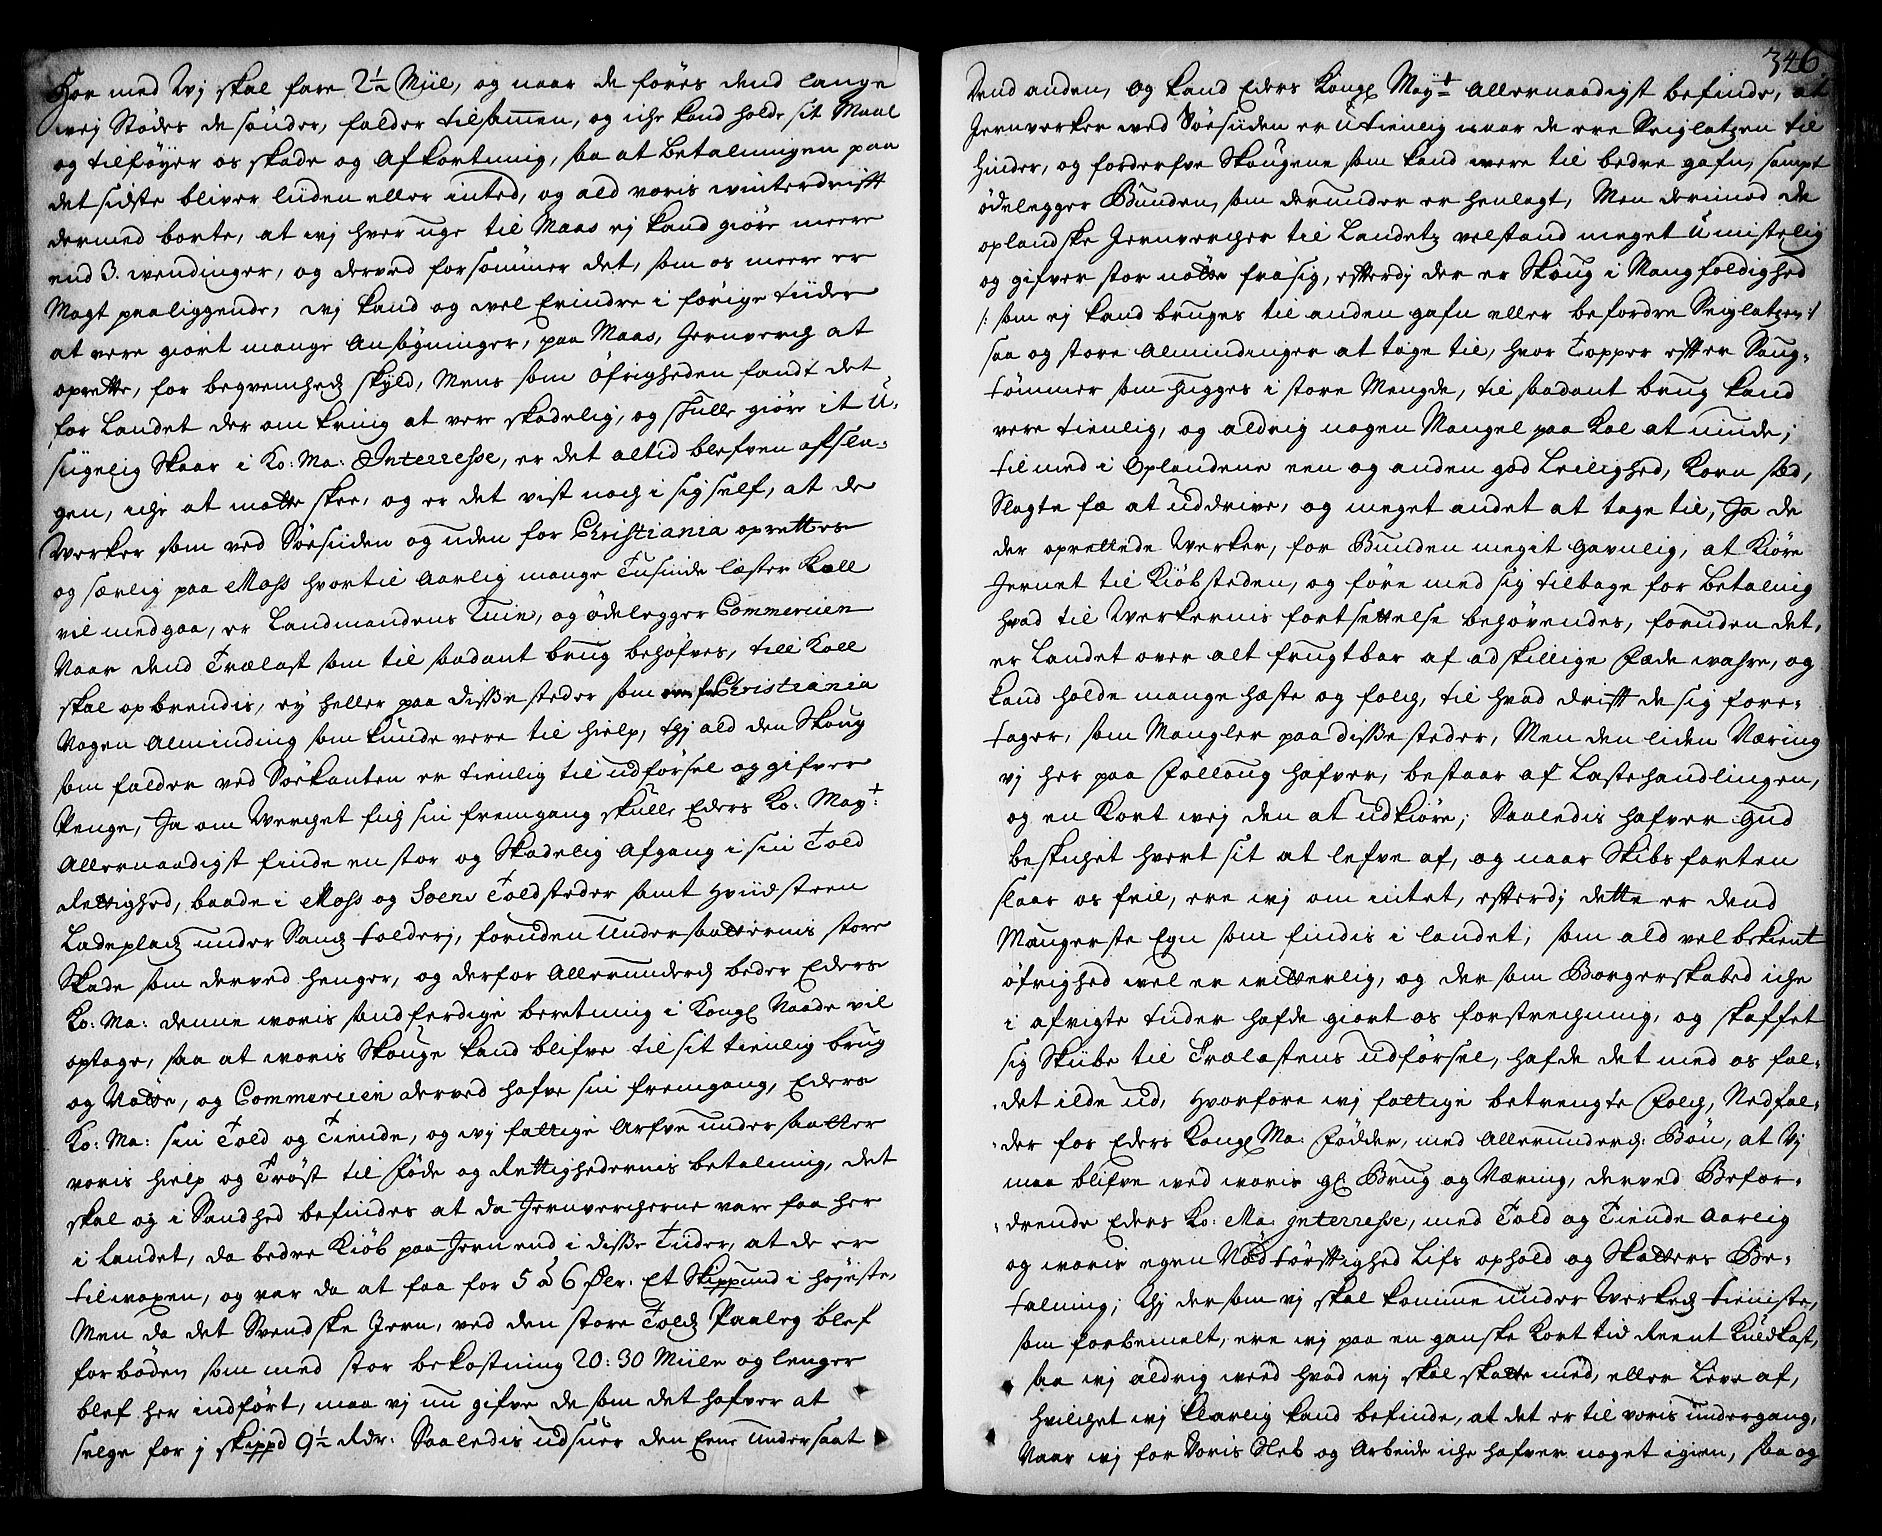 Hor med Wj skal fare 2½ Miil, og naar de föres dend lange
wej Stödes de sönder, falder tilsammen, og iche kand holde sit Maal
og tilföyer os skade og Afkortning, saa at betalningen paa
det sidste bliver liiden eller inted, og ald voris winterdrifft
dermed borte, at wj hver uge til Maas ej kand giöre meere
end 3. wendinger, og derved forsömmer det, som os meere er
Magt paaliggende, wj kand og wel Erindre i forige tiider
at vere giort mange Ansögninger, paa Maas, Jernverch at
oprette, for beqvemhed skyld, Mens som öfrigheden fandt det
for Landet der om kring at vere skadelig, og skulle giöre it U-
siigelig Skaar i Ko: Ma: Interresse, er det altid blefven afslen-
gen, iche at motte skee, og er det vist noch i sig self, at de
Werker som ved Söesiiden og uden for Christiania oprettes
og særlig paa Moss hvortil Aarlig mange Tusinde læster Koell
vil medgaa, er Landmandens Ruin, og ödelegger Commercien
Naar dend Trælast som til saadant brug behöfves, till Koll
skal opbrendis, ey heller paa disse steder som Christiania
Nogen Alminding som kunde vere til hielp, thj ald den Skoug
som falder ved Söekanten er tienlig til udförsel og gifver
Penge, Ja om Werchet fich sin fremgang skulle Eders Ko: May:t
Allernaadigst finde en stor og Skadelig Afgang i sin Told
Rettighed, baade i Moss og Soens Toldsteder samt Hviidsteen
Ladeplads under Sands tolderj, foruden Undersaatternis store
Skade som derved henger, og derfor Allerunderd beder Eders
Ko: Ma: denne woris sandferdige beretning i Kongl Naade vil
optage, saa at woris Skouge kand blifve til sit tienlig brug
og Nötte, og Commercien derved hafve sin fremgang, Eders
Ko: Ma: sin Told og Tiende, og wj fattige Arfve undersaatter
voris hielp og Tröst til Föde og Rettighedernis betalning, det
skal og i Sandhed befindes at da Jernvercherne vare faa her
i Landet, da bedre Kiöb paa Jern end i disse Tider, at de er
tilwoxen, og var da at faa for 5 à 6 Rdr. Et Skippund i höjeste,
Men da det Svendske Jern, ved den store Told Paaleg blef
forböden som med stor bekostning 20: 30 Miile og lenger
blef her indfört, maa vj nu gifve de som det hafver at
selge for j skippd 9½ Rdr: Saaledis udsuer den Eene Undersaat
346.
Dend anden, Og kand Eders Kongl May:t Allernaadigst befinde, at
Jernverker wed Söesiiden er Utienlig naar de ere Seiglatzen til
hinder, og forderfve Skougene som kand were til bedre gafn, sampt
ödelegger Bunden, som derunder er henlagt, Men derimod de
oplandske Jernvercher til Landetz velstand meget Umistelig
og gifver stor nötte fra sig, efterdj der er Skoug i Mangfoldighed
/: som ej kand bruges til anden gafn eller befordre Seiglatzen :/
saa og store Almindinger at tage til, hvor Topper efter Saug-
tömmer som hugges i store Mengde, til saadant brug kand
vere tienlig, og aldrig nogen Mangel paa Kol at vinde;
til med i Oplandene een og anden god Leilighed, Korn sæd,
Slagte fæ at uddrive, og meget andet at tage til, Ja de
der oprettede Werker, for Bunden megit gavnlig, at Kiöre
Jernet til Kiöbsteden, og före med sig tilbage for betalnig
hvad til Werkernis fortsettelse behövendes, foruden det,
er Landet over alt frugtbar af adskillige Föde wahre, og
kand holde mange heste og folch, til hvad drifft de sig fore-
tager, som Mangler paa disse steder, Men den liden Næring
vj her paa Folloug hafver, bestaar af Lastehandlingen,
og en Kort wej den at udkiöre; Saaledis hafver Gud
beskichet hvert sit at lefve af, og naar Skibs farten
slaar os feil, ere wj om intet, efterdj dette er dend
Maugerste Egn som findis i landet; som ald vel bekient
öfrighed wel er witterlig, og der som Borgerskabed iche
i afvigte tider hafde giort os forstrechning, og skaffet
sig Skibe til Trælastens udförsel, hafde det med os fal-
det ilde ud, Hvorfore wj fattige betrengte Folch, Nedfal-
der for Eders Kongl Ma: Födder, med Allerunderd: Bön, at Vj
maa blifve wed woris gl Brug og Næring, derved Befor-
drende Eders Ko: Ma: Interresse, med Told og Tiende Aarlig
og woris egen Nödtörfftighed Lifs ophold og Skatters Be-
talning; thj der som vj skal komme under Werkeds tieniste,
som forbemelt, ere wj paa en ganske Kort tid Reent Kuldkast,
saa wj aldrig weed hvad wj skal skatte med, eller Leve af,
hvilchet wj klarlig kand befinde, at det er til voris undergang,
Naar wj for Voris Sleb og Arbeide iche hafver noget igien, saa og